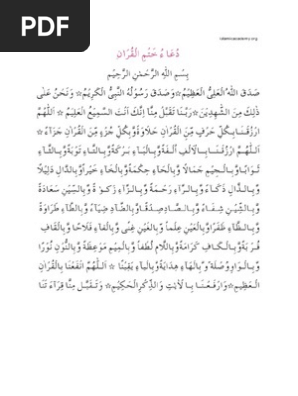 PDF
islamicacademy.org
دُعَاءُ خَتْمِ الْقُرْاٰنِ
بِسْمِ اللّٰهِ الرَّحْمٰنِ الرَّحِيْمِ
صَدَقَ اللّٰهُ الْعَلِيُّ الْعَظِيْمُ ۞ وَصَدَقَ رَسُوْلُهُ النَّبِيُّ الْكَرِيْمُ ۞ وَنَحْنُ عَلٰى
ذٰلِكَ مِنَ الشّٰهِدِيْنَ ۞ رَبَّنَا تَقَبَّلْ مِنَّا اِنَّكَ اَنْتَ السَّمِيْعُ الْعَلِيْمُ ۞ اَللّٰهُمَّ
ارْزُقْنَا بِكُلِّ حَرْفٍ مِّنَ الْقُرْاٰنِ حَلَاوَةً وَّبِكُلِّ جُزْءٍ مِّنَ الْقُرْاٰنِ جَزَاءً ۞
اَللّٰهُمَّ ارْزُقْنَا بِالْاَلِفِ اُلْفَةً وَّبِالْبَاءِ بَرَكَةً وَّبِالتَّاءِ تَوْبَةً وَّبِالثَّاءِ
ثَوَابًا وَّبِالْجِيْمِ جَمَالًا وَّبِالْحَاءِ حِكْمَةً وَّبِالْخَاءِ خَيْرًا وَّبِالدَّالِ دَلِيْلًا
وَّبِالذَّالِ ذَكَاءً وَّبِالرَّاءِ رَحْمَةً وَّبِالزَّاءِ زَكٰوةً وَّبِالسِّيْنِ سَعَادَةً
وَّبِالشِّيْنِ شِفَاءً وَّبِالصَّادِ صِدْقًا وَّبِالضَّادِ ضِيَاءً وَّبِالطَّاءِ طَرَاوَةً
وَّبِالظَّاءِ ظَفَرًا وَّبِالْعَيْنِ عِلْمًا وَّبِالْغَيْنِ غِنًى وَّبِالْفَاءِ فَلَاحًا وَّبِالْقَافِ
قُرْبَةً وَّبِالْكَافِ كَرَامَةً وَّبِاللَّامِ لُطْفًا وَّبِالْمِيْمِ مَوْعِظَةً وَّبِالنُّوْنِ نُوْرًا
وَّبِالْوَاوِ وُصْلَةً وَّبِالْهَاءِ هِدَايَةً وَّبِالْيَاءِ يَقِيْنًا ۞ اَللّٰهُمَّ انْفَعْنَا بِالْقُرْاٰنِ
الْعَظِيْمِ ۞ وَارْفَعْنَا بِالْاٰيٰتِ وَالذِّكْرِ الْحَكِيْمِ ۞ وَتَقَبَّلْ مِنَّا قِرَاءَتَنَا